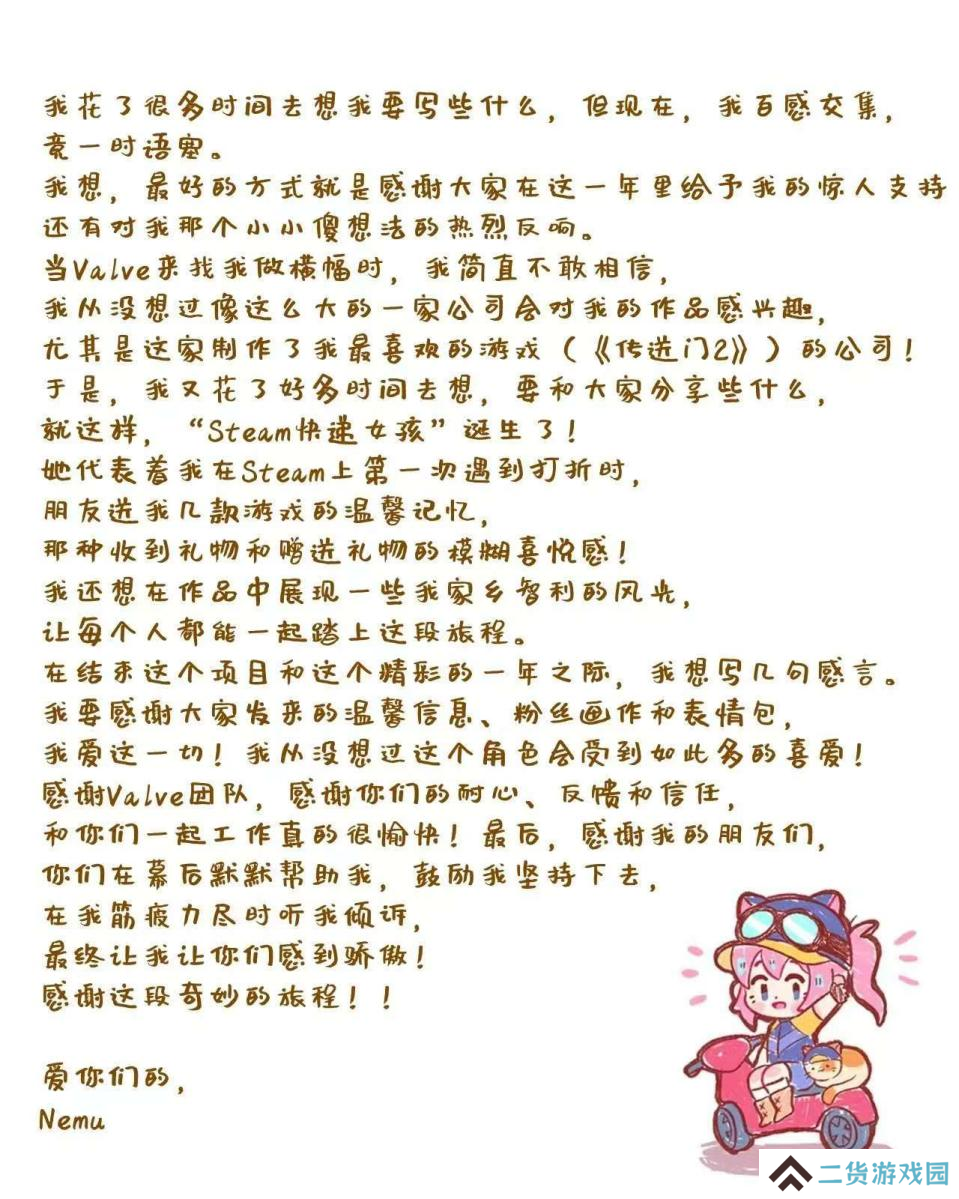 我花了很多时间去想我要写些什么，但现在，我百感交集，
竟一时语塞。
我想，最好的方式就是感谢大家在这一年里给予我的惊人支持
还有对我那个小小傻想法的热烈反响。
当Valve来找我做横幅时，我简直不敢相信，
我从没想过像这么大的一家公司会对我的作品感兴趣，
尤其是这家制作了我最喜欢的游戏（《传送门2》）的公司！
于是，我又花了好多时间去想，要和大家分享些什么，
就这样，“Steam快递女孩”诞生了！
她代表着我在Steam上第一次遇到打折时，
朋友送我几款游戏的温馨记忆，
那种收到礼物和赠送礼物的模糊喜悦感！
我还想在作品中展现一些我家乡智利的风光，
让每个人都能一起踏上这段旅程。
在结束这个项目和这个精彩的一年之际，我想写几句感言。
我要感谢大家发来的温馨信息、粉丝画作和表情包，
我爱这一切！我从没想过这个角色会受到如此多的喜爱！
感谢Valve团队，感谢你们的耐心、反馈和信任，
和你们一起工作真的很愉快！最后，感谢我的朋友们，
你们在幕后默默帮助我，鼓励我坚持下去，
在我筋疲力尽时听我倾诉，
最终让我让你们感到骄傲！
感谢这段奇妙的旅程！！
爱你们的，
Nemu
二货游戏园